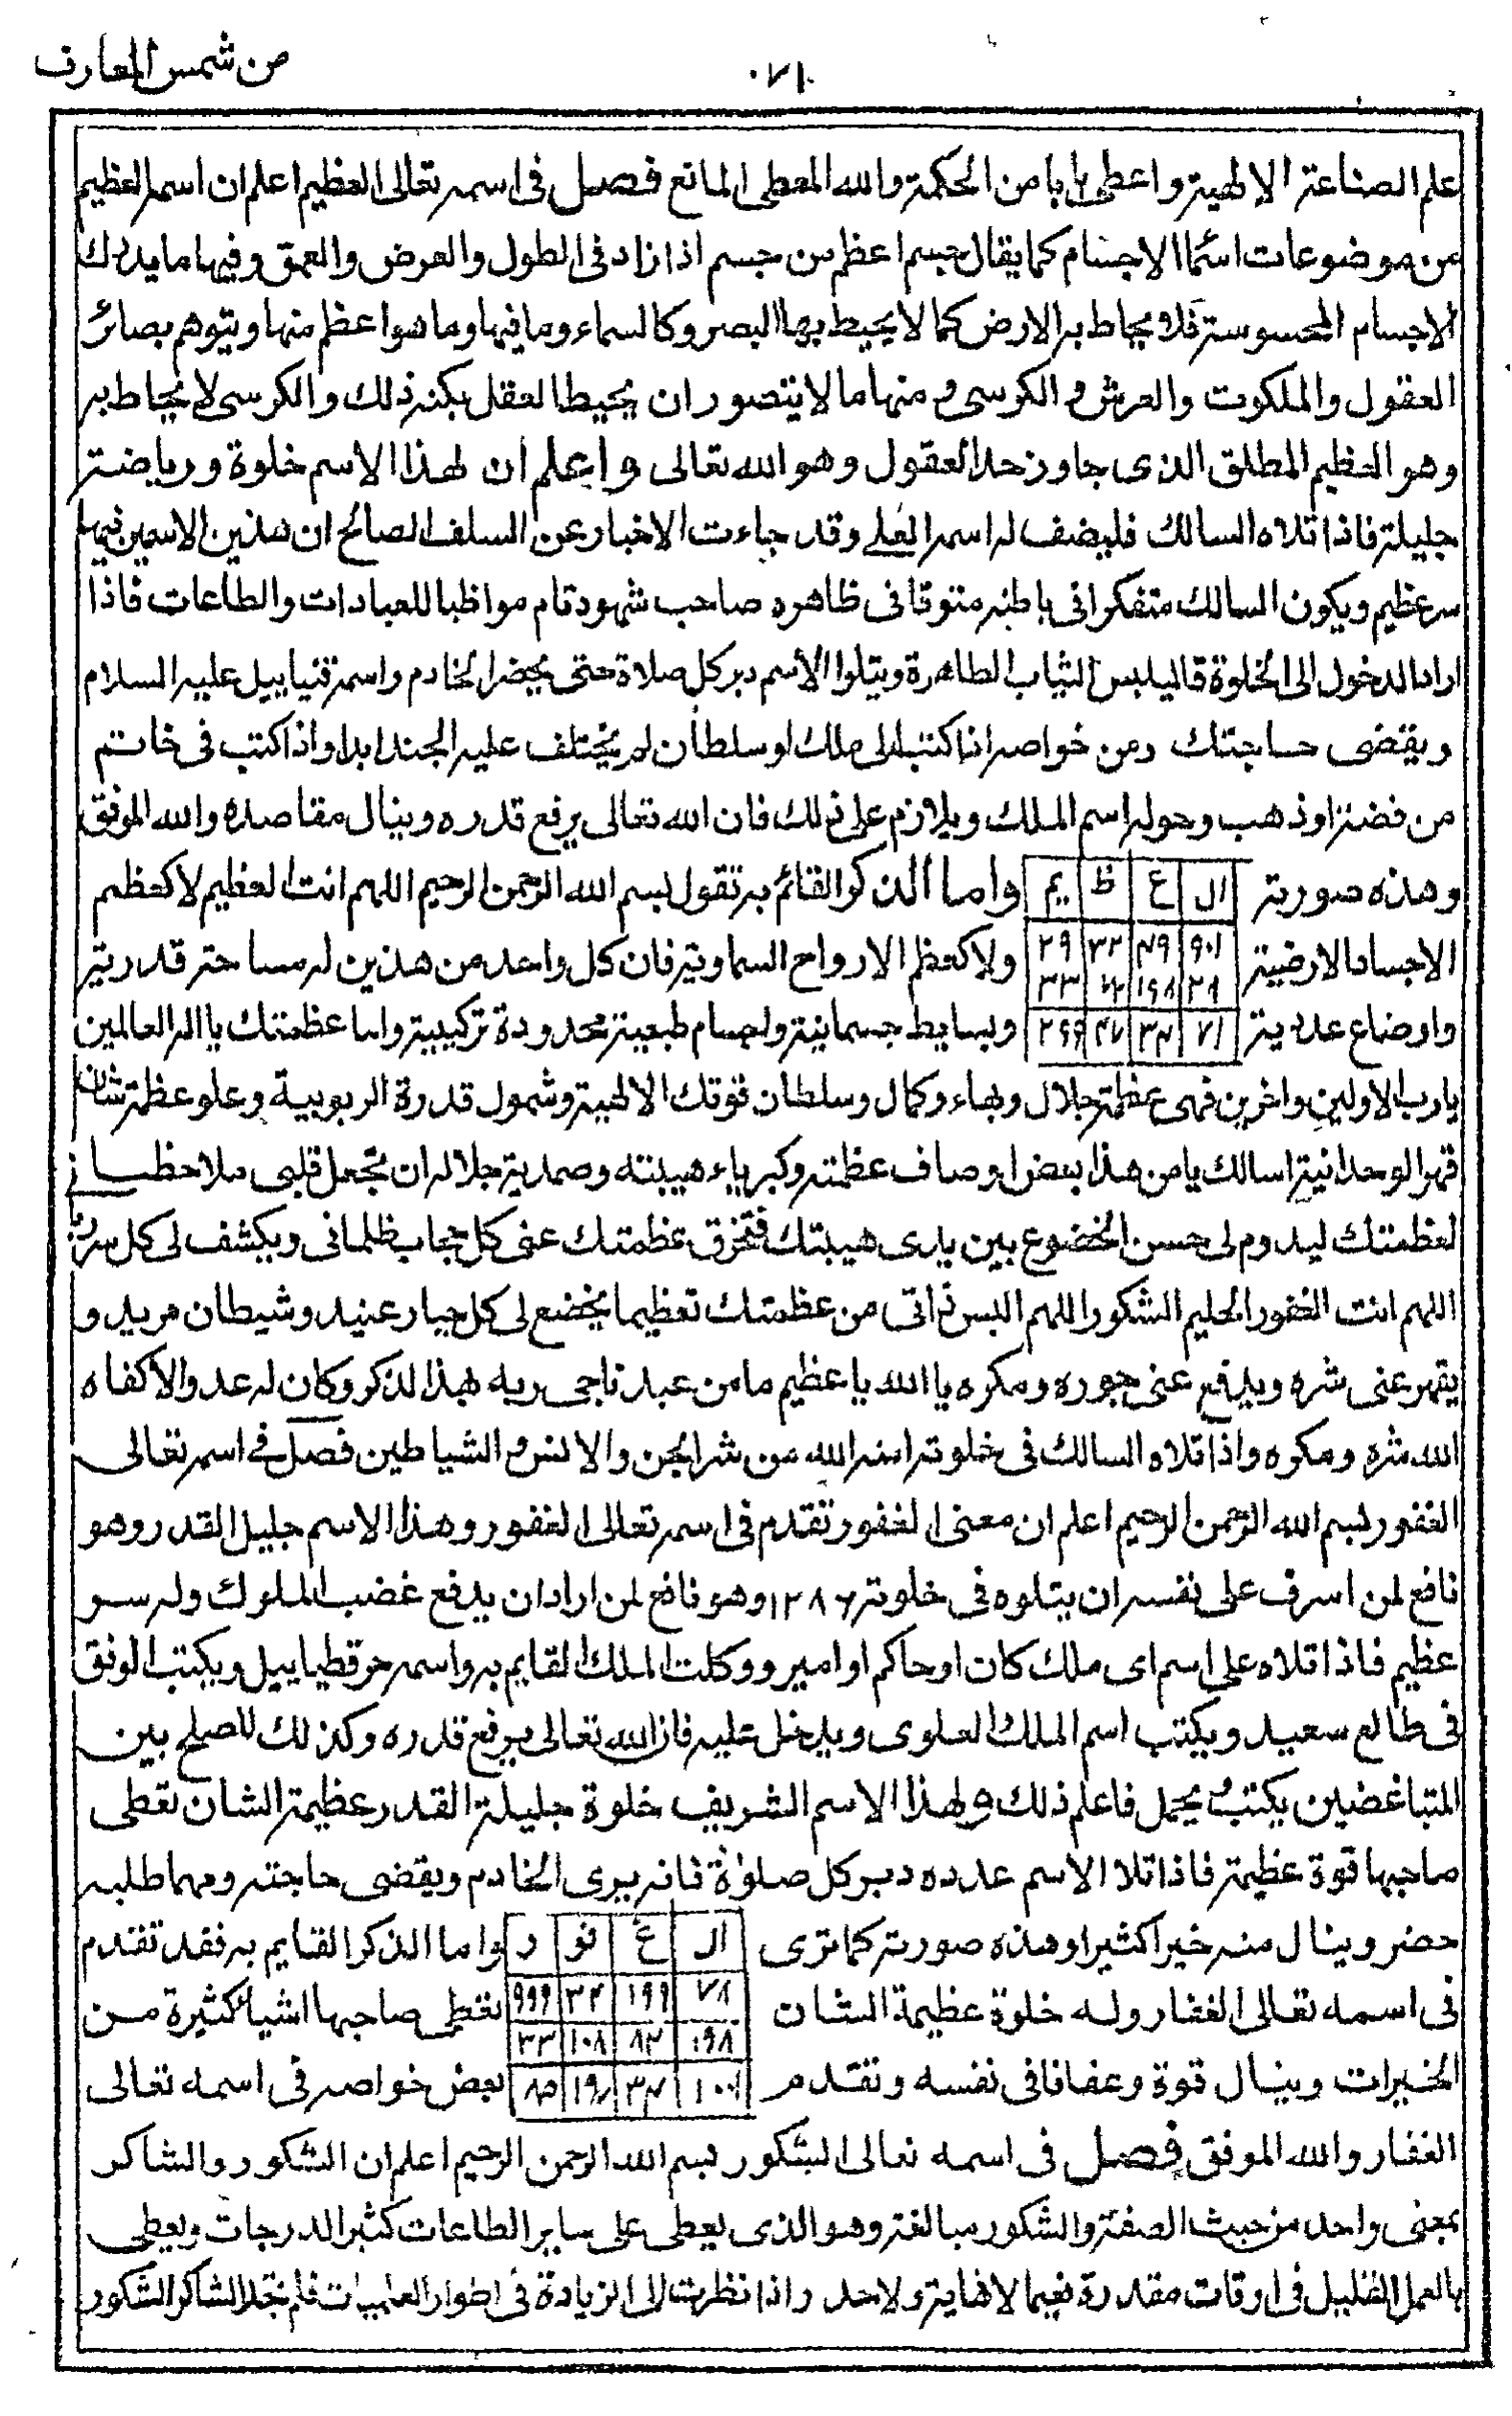 من شمس المعارف
٧١٠
علم الصناعة الالهية واعطى بابا من الحكمة والله المعطى المانع فصل فى اسمه تعالى العظيم اعلم ان اسمه العظيم
من موضوعات اسما الاجسام كما يقال جسم اعظم من جسم اذا زاد فى الطول والعرض والعمق وفيها ما يدرك
الاجسام المحسوسة فلا يحاط به الارض كما لا يحيط بها البصر وكالسماء وما فيها وما هو اعظم منها ويتوهم بصائر
العقول والملكوت والعرش والكرسى ومنها ما لا يتصور ان يحيط العقل بكنه ذلك والكرسى لا يحاط به
وهو العظيم المطلق الذى جاوز حد العقول وهو الله تعالى واعلم ان لهذا الاسم خلوة ورياضة
جليلة فاذا تلاه السالك فليضف له اسمه العلى وقد جاءت الاخبار عن السلف الصالح ان هذين الاسمين فيها
سر عظيم ويكون السالك متفكرا فى باطنه متوقا فى ظاهره صاحب شهود قام مواظبا للعبادات والطاعات فاذا
اراد الدخول الى الخلوة فاليلبس الثياب الطاهرة ويتلوا الاسم دبر كل صلاة حتى يحضر الخادم واسمه قنياييل عليه السلام
ويقضى حاجتك ومن خواصه اذا كتب الى ملك او سلطان لم يختلف عليه الجند ابدا واذا كتب فى خاتم
من فضة او ذهب وحوله اسم الملك ويلازم على ذلك فان الله تعالى يرفع قدره وينال مقاصده والله الموفق
وهذه صورته ال ع ظ يم واما الذكر القائم به تقول بسم الله الرحمن الرحيم اللهم انت العظيم لا كعظم
الاجساد الارضية ٩٠١ ٤٩ ٣٢ ٢٩ ولا كعظم الارواح السماوية فان كل واحد من هذين له مساحة قدرية
٢٨ ٣٣
واوضاع عددية ٧١ ٣٤ ٤٧ وبسايط جسمانية واجسام طبعية محدودة تركيبية واما عظمتك يا اله العالمين
يارب الاولين واخرين فهى عظمة جلال وبهاء وكمال وسلطان قوتك الالهية وشمول قدرة الربوبية وعلو عظمة شان
قهر الوحدانية اسالك يامن هذا بعض اوصاف عظمته وكبرياء هيبته وصمدية جلاله ان تجعل قلبى ملاحظا
لعظمتك ليدوم لى حسن الخضوع بين يدى هيبتك فتخرق عظمتك عنى كل حجاب ظلمانى ويكشف لى كل سر
اللهم انت الغفور الحليم الشكور اللهم البس ذاتى من عظمتك تعظيما يخضع لى كل جبار عنيد وشيطان مريد و
يقهر عنى شره ويدفع عنى جوره ومكره يا الله يا عظيم ما من عبد ناجى ربه بهذا الذكر وكان له عدو الا كفاه
الله شره ومكره واذا تلاه السالك فى خلوته امنه الله من شر الجن والانس والشياطين فصل فى اسمه تعالى
الغفور بسم الله الرحمن الرحيم اعلم ان معنى الغفور تقدم فى اسمه تعالى الغفور وهذا الاسم جليل القدر وهو
نافع لمن اسرف على نفسه ان يتلوه فى خلوته ١٢٨٦ وهو نافع لمن اراد ان يدفع غضب الملوك وله سر
عظيم فاذا تلاه على اسم اى ملك كان او حاكم او امير ووكلت الملك القايم به واسمه حرقطياييل ويكتب الوفق
فى طالع سعيد ويكتب اسم الملك العلوى ويدخل عليه فان الله تعالى يرفع قدره وكذلك للصلح بين
المتباغضين يكتب ويحمل فاعلم ذلك ولهذا الاسم الشريف خلوة جليلة القدر عظيمة الشان تعطى
صاحبها قوة عظيمة فاذا تلا الاسم عدده دبر كل صلوة فانه يرى الخادم ويقضى حاجته ومهما طلبه
حضر وينال منه خيرا كثيرا وهذه صورته كما ترى ال غ فو ر واما الذكر القايم به فقد تقدم
فى اسمه تعالى الغفار وله خلوة عظيمة الشان ٧٨ ١٩٩ ٣٢ ٩٩٩ تعطى صاحبها اشياء كثيرة من
١٩٨ ٨٢ ١٠٨ ٣٣
الخيرات وينال قوة وعفافا فى نفسه وتقدم ١٠٠١ ٣٤ بعض خواصه فى اسمه تعالى
الغفار والله الموفق فصل فى اسمه تعالى الشكور بسم الله الرحمن الرحيم اعلم ان الشكور والشاكر
بمعنى واحد من حيث الصفة والشكور مبالغة وهو الذى يعطى على ساير الطاعات كثير الدرجات ويعطى
بالعمل القليل فى اوقات مقدرة نعيما لا نهاية ولا حد واذا نظرت الى الزيادة فى اطوار فلم تجد الشاكر الشكور